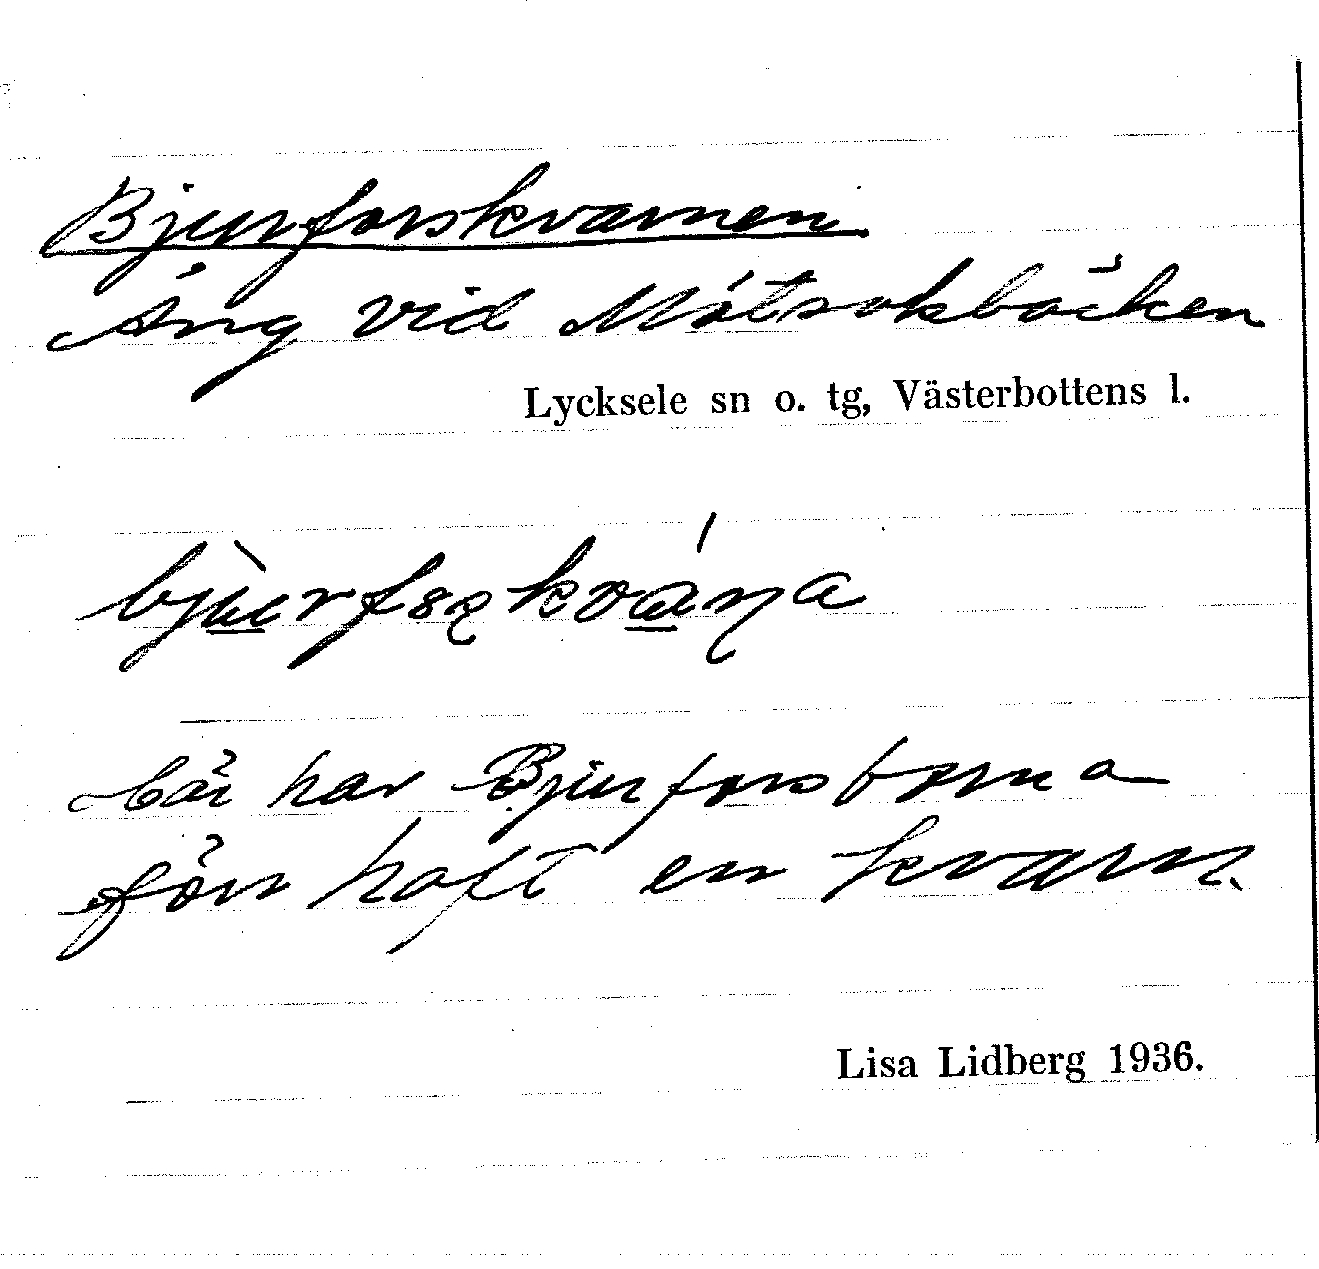 Bjurforskvarnen
Äng vid Måtsokbäcken
Lycksele sn o. tg, Västerbottens l.
här har Bjurforsborna
förr haft en kvarn.
Lisa Lidberg 1936.